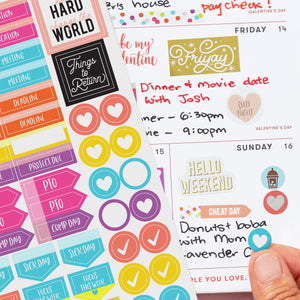 HARD
WORLD
Things
to
Return
MEETING
MEETING
MEETING
DEADLINE
DEADLINE
DEADLINE
PROJECT DUE
PTO
PTO
COMP DAY
COMP DAY
SICK DAY
SICK DAY
er's house
pay check!
VALENTINE'S DAY
FRIDAY 14
be my
Valentine
Friyay
Dinner & movie date
with Josh
DATE
NIGHT
Dinner - 6:30pm
Movie - 9:00pm
VALENTINE'S DAY
15
SUNDAY 16
HELLO
WEEKEND
CHEAT DAY
Donuts & boba
with Mom
Lavender
PLE YOU LOVE.